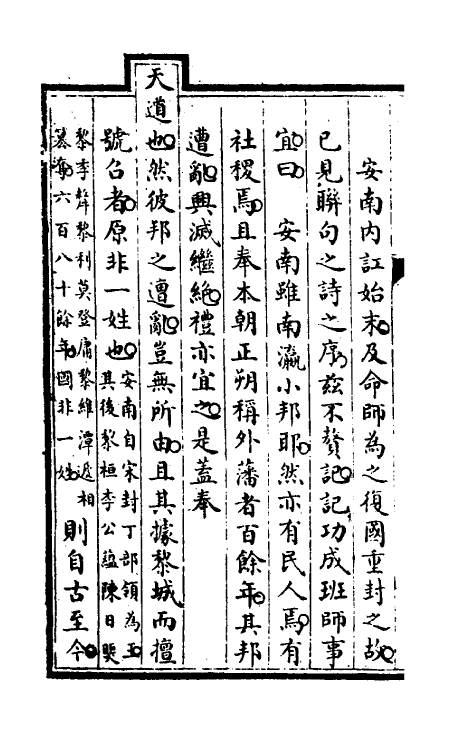 安南內訌始末及命師為之復國重封之故
已見聯句之詩之序茲不贅記記功成班師事
宜曰　安南雖南瀛小邦耶然亦有民人焉有
社稷焉且奉本朝正朔稱外藩者百餘年其邦
遭亂興滅繼絕禮亦宜之是蓋奉
天道也然彼邦之遭亂豈無所由且其據黎城而擅
號召者原非一姓也安南自宋封丁部領為王
其後黎桓李公蘊陳日煚
黎季犛黎利莫登庸黎維潭遞相
篡奪六百八十餘年國非一姓則自古至今